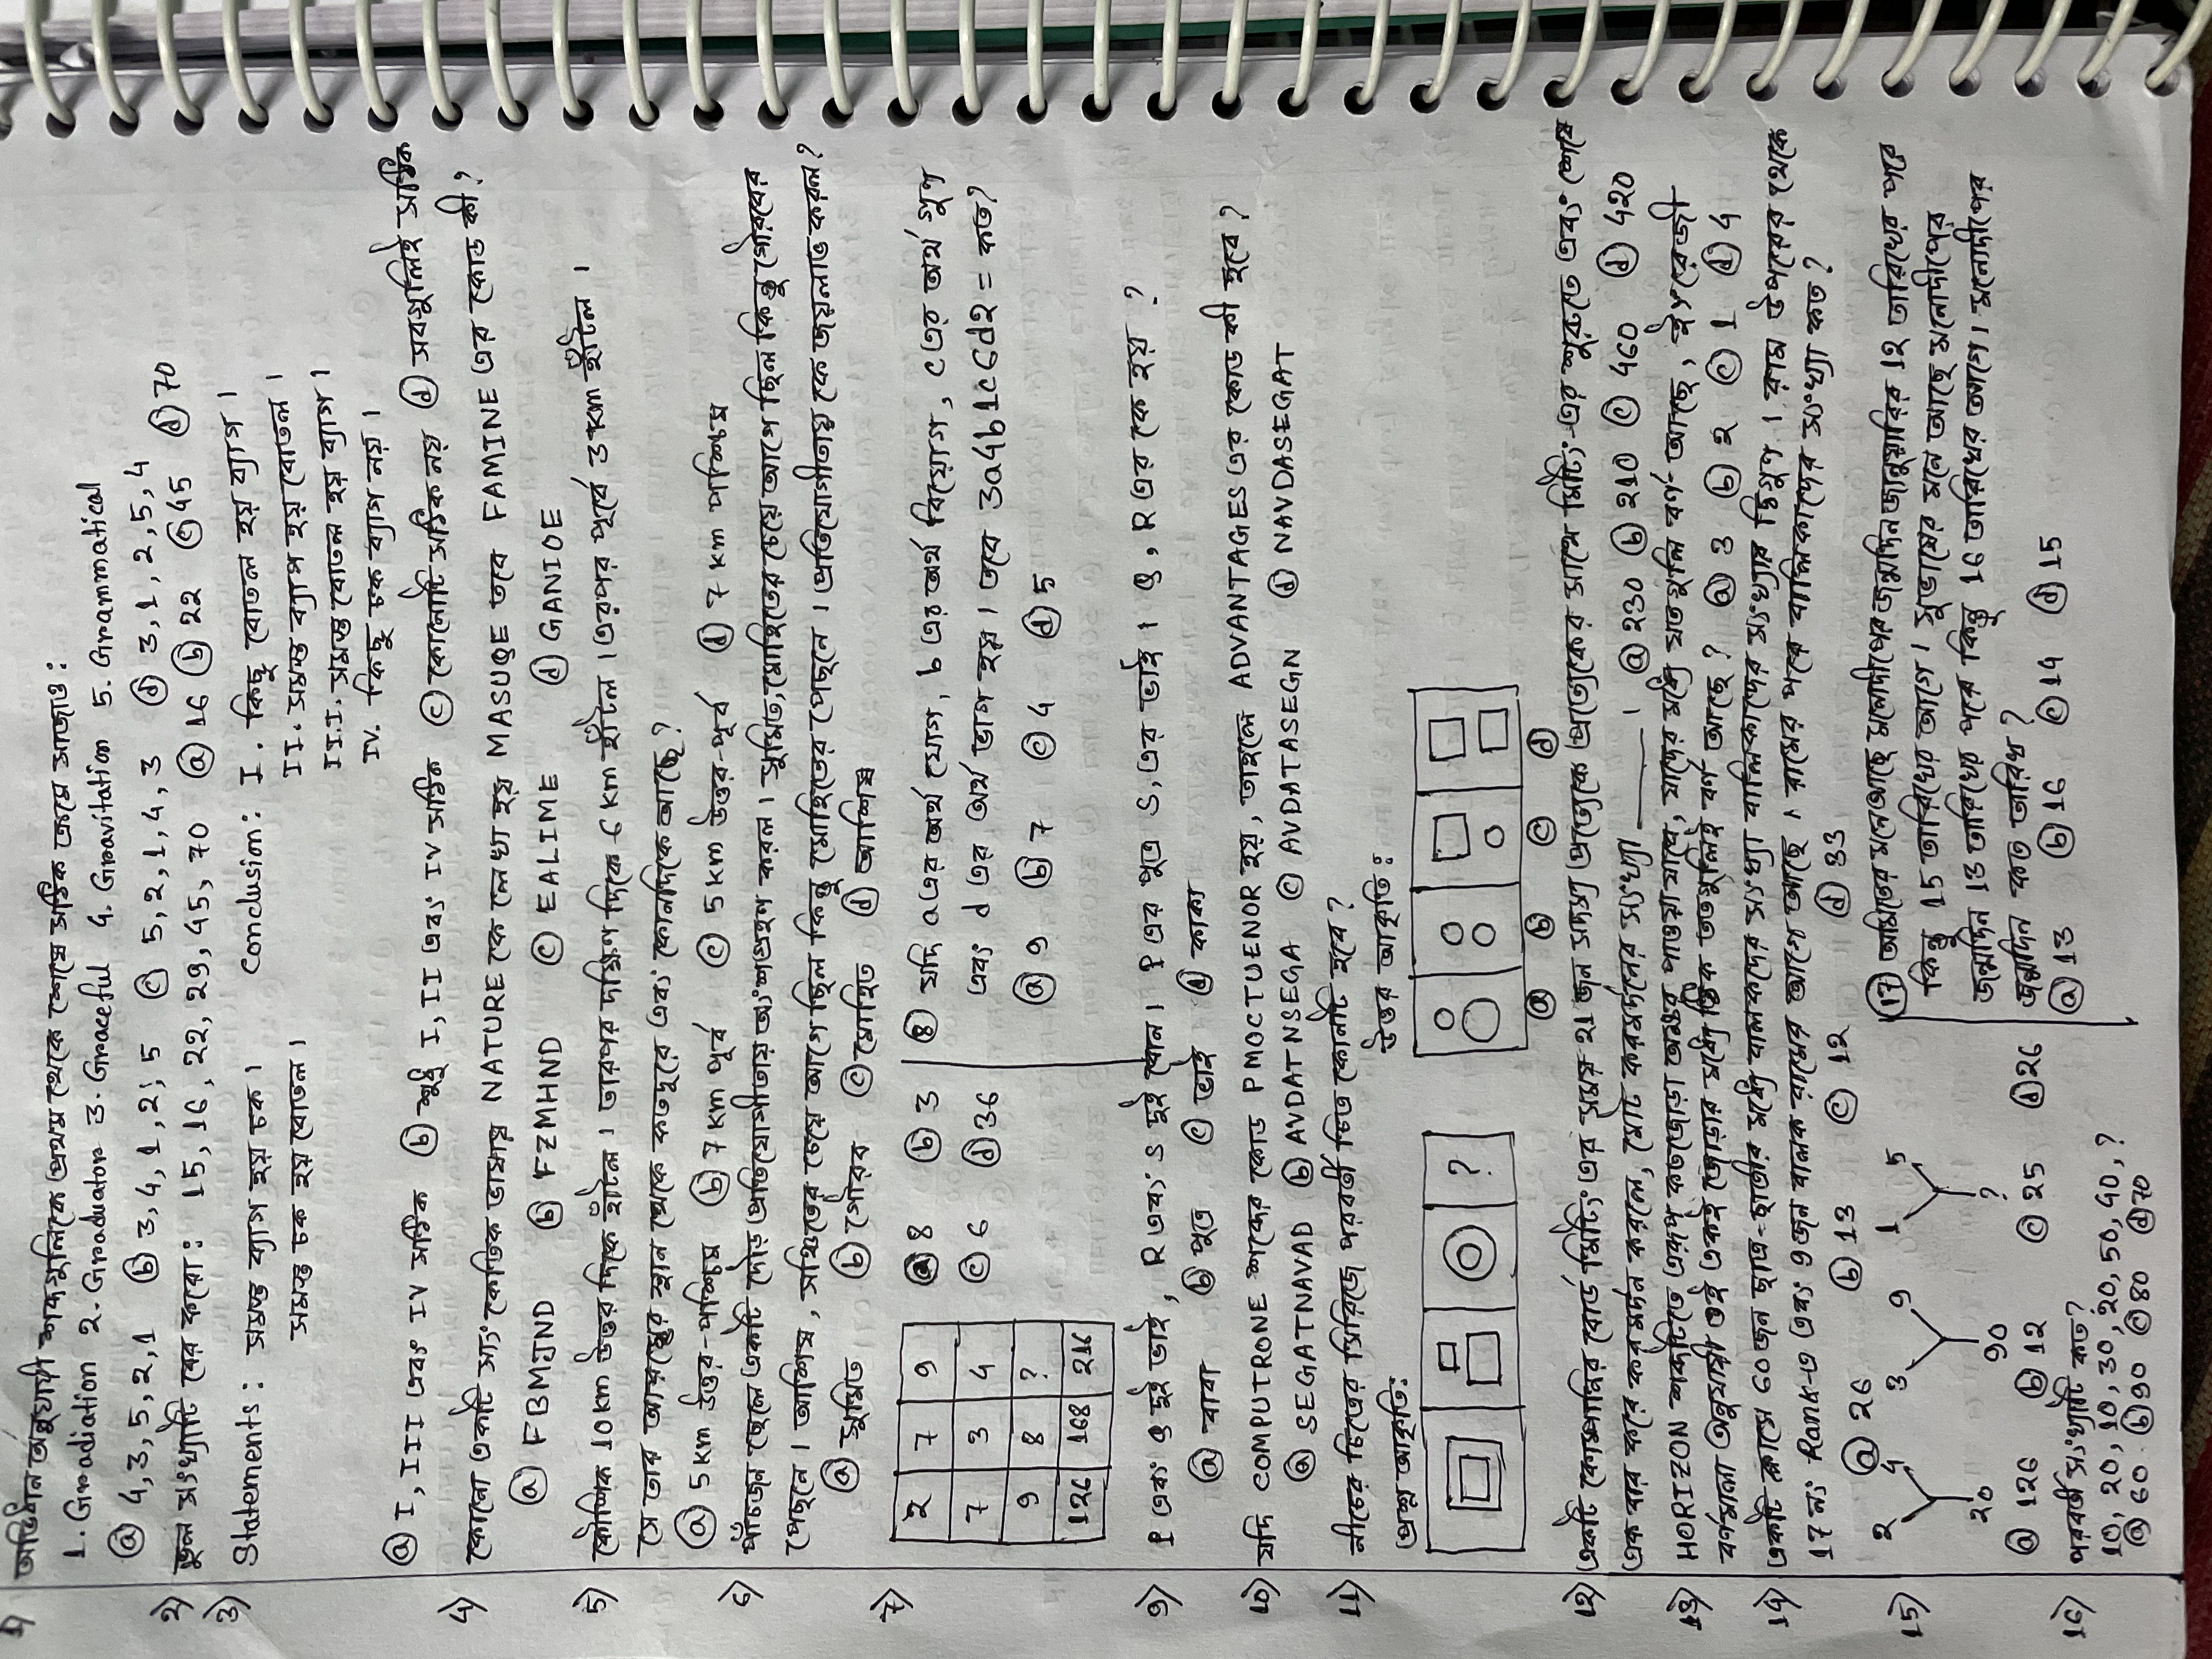 1) অভিধান অনুযায়ী শব্দগুলিকে প্রথম থেকে শেষে সঠিক ক্রমে সাজাও:
1. Gradiation 2. Graduator 3. Graceful 4. Gravitation 5. Grammatical
ⓐ 4, 3, 5, 2, 1 ⓑ 3, 4, 1, 2, 5 ⓒ 5, 2, 1, 4, 3 ⓓ 3, 1, 2, 5, 4
2) ভুল সংখ্যাটি বের করো: 15, 16, 22, 29, 45, 70 ⓐ 16 ⓑ 22 ⓒ 45 ⓓ 70
3) Statements: সমস্ত ব্যাগ হয় চক। Conclusion: I. কিছু বোতল হয় ব্যাগ।
সমস্ত চক হয় বোতল। II. সমস্ত ব্যাগ হয় বোতল।
III. সমস্ত বোতল হয় ব্যাগ।
IV. কিছু চক ব্যাগ নয়।
ⓐ I, III এবং IV সঠিক ⓑ শুধু I, II এবং IV সঠিক ⓒ কোনোটি সঠিক নয় ⓓ সবগুলিই সঠিক
4) কোনো একটি সাংকেতিক ভাষায় NATURE কে লেখা হয় MASUQE তবে FAMINE এর কোড কী?
ⓐ FBMJND ⓑ FZMHND ⓒ EALIME ⓓ GANIOE
5) কৌশিক 10km উত্তর দিকে হাঁটল। তারপর দক্ষিণ দিকে 6 km হাঁটল। এরপর পূর্বে 3 km হাঁটল।
সে তার আরম্ভের স্থান থেকে কতদূরে এবং কোনদিকে আছে?
ⓐ 5 km উত্তর-পশ্চিম ⓑ 7 km পূর্ব ⓒ 5 km উত্তর-পূর্ব ⓓ 7 km পশ্চিম
6) পাঁচজন ছেলে একটি দৌড় প্রতিযোগীতায় অংশগ্রহণ করল। সুমিত, মোহিতের চেয়ে আগে ছিল কিন্তু গৌরবের
পেছনে। আশিষ, সঞ্চিতের চেয়ে আগে ছিল কিন্তু মোহিতের পেছনে। প্রতিযোগীতায় কে জয়লাভ করল?
ⓐ সুমিত ⓑ গৌরব ⓒ মোহিত ⓓ আশিষ
7) 2 7 9 ⓐ 8 ⓑ 3
7 3 4 ⓒ 6 ⓓ 36
9 8 ?
126 168 216
⑧ যদি a এর অর্থ যোগ, b এর অর্থ বিয়োগ, c এর অর্থ গুণ
এবং d এর অর্থ ভাগ হয়। তবে 3a4b1c6d2 = কত?
ⓐ 9 ⓑ 7 ⓒ 4 ⓓ 5
9) P এবং Q দুই ভাই, R এবং S দুই বোন। P এর পুত্র S, এর ভাই। Q, R এর কে হয়?
ⓐ বাবা ⓑ পুত্র ⓒ ভাই ⓓ কাকা
10) যদি COMPUTRONE শব্দের কোড PMOCTUENOR হয়, তাহলে ADVANTAGES এর কোড কী হবে?
ⓐ SEGATNAVAD ⓑ AVDATNSEGA ⓒ AVDATASEGN ⓓ NAVDASEGAT
11) নীচের চিত্রের সিরিজে পরবর্তী চিত্র কোনটি হবে?
প্রশ্ন আকৃতি: উত্তর আকৃতি:
?
ⓐ ⓑ ⓒ ⓓ
12) একটি কোম্পানির বোর্ড মিটিং এর সময় 21 জন সদস্য প্রত্যেকে প্রত্যেকের সাথে মিটিং-এর শুরুতে এবং শেষে
এক বার করে করমর্দন করলে, মোট করমর্দনের সংখ্যা ______। ⓐ 230 ⓑ 210 ⓒ 460 ⓓ 420
13) HORIZON শব্দটিতে এরূপ কতজোড়া অক্ষর পাওয়া যাবে, যাদের মধ্যে যতগুলি বর্ণ আছে, ইংরেজী
বর্ণমালা অনুযায়ী ওই একই জোড়ার মধ্যে ঠিক ততগুলিই বর্ণ আছে? ⓐ 3 ⓑ 2 ⓒ 1 ⓓ 4
14) একটি ক্লাসে 60 জন ছাত্র-ছাত্রীর মধ্যে বালকদের সংখ্যা বালিকাদের সংখ্যার দ্বিগুণ। রাম উপরের থেকে
17 নং Rank-এ এবং 9 জন বালক রামের আগে আছে। রামের পরে বালিকাদের সংখ্যা কত?
ⓐ 26 ⓑ 13 ⓒ 12 ⓓ 33
15) 2 4 3 9 1 5
20 90 ?
ⓐ 126 ⓑ 12 ⓒ 25 ⓓ 26
16) পরবর্তী সংখ্যাটি কত?
10, 20, 10, 30, 20, 50, 40, ?
ⓐ 60 ⓑ 90 ⓒ 80 ⓓ 70
⑰ অমিতের মনে আছে মনোদীপের জন্মদিন জানুয়ারির 12 তারিখের পরে
কিন্তু 15 তারিখের আগে। সুভাষের মনে আছে মনোদীপের
জন্মদিন 13 তারিখের পরে কিন্তু 16 তারিখের আগে। মনোদীপের
জন্মদিন কত তারিখ?
ⓐ 13 ⓑ 16 ⓒ 14 ⓓ 15